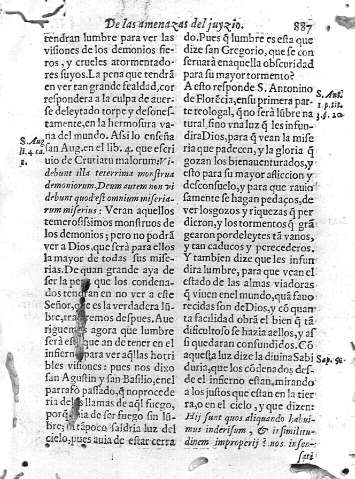 De las amenazas del juyzio. 887
tendran lumbre para ver las
visiones de los demonios fie-
ros, y crueles atormentado-
res suyos. La pena que tendrã
en ver tan grande fealdad, cor
respondera a la culpa de auer-
se deleytado torpe y desones-
tamente, en la hermosura va-
na del mundo. Assi lo enseña
san Aug. en el lib. 4. que escri-
uio de Cruciatu malorum: Vi-
debunt illa teterrima monstrua
demoniorum, Deum autem non vi
debunt quod est omnium miseria-
rum miserius: Veran aquellos
temerosissimos monstruos de
los demonios; pero no podrã
ver a Dios, que serà para ellos
la mayor de todas sus mise-
rias. De quan grande aya de
ser la pena que los condena-
dos tendran en no ver a este
Señor, que es la verdadera lũ-
bre, trataremos despues. Aue
riguemos agora que lumbre
serà esta que an de tener en el
infierno para ver aq̃llas horri
bles visiones: pues nos dixo
san Agustin y san Basilio, en el
parrafo passado, q̃ no procede
ria de las llamas de aq̃l fuego,
porq̃ auia de ser fuego sin lũ-
bre; ni tampoco saldria luz del
cielo, pues auia de estar cerra
S. Aug.
li. 4. ca
do. Pues q̃ lumbre es esta que
dize san Gregorio, que se con
seruarà en aquella obscuridad
para su mayor tormento?
A esto responde S. Antonino
de Florẽcia, en su primera par-
te teologal, q̃ no serà lũbre na
tural, sino vna luz q̃ les infun-
dira Dios, para q̃ vean la mise
ria que padecen, y la gloria q̃
gozan los bienauenturados, y
esto para su mayor afliccion y
desconsuelo, y para que rauio
samente se hagan pedaços, de
ver los gozos y riquezas q̃ per
dieron, y los tormentos q̃ grã
gearon por deleytes tã vanos,
y tan caducos y perecederos.
Y tambien dize que les infun
dira lumbre, para que vean el
estado de las almas viadoras
q̃ viuen en el mundo, quã fauo
recidas son de Dios, y cõ quan
ta facilidad obrã el bien q̃ tã
dificultoso se hazia a ellos, y as
si quedaran confundidos. Cõ
aquesta luz dize la diuina Sabi
duria, que los cõdenados des-
de el infierno estan, mirando
a los justos que estan en la tier
ra, o en el cielo, y que dizen:
Hij sunt quos aliquando habui-
mus inderisum, & in similitu-
dinem improperij? nos insen-
sati
S. Ant.
1. p. tit.
Sap. 5.